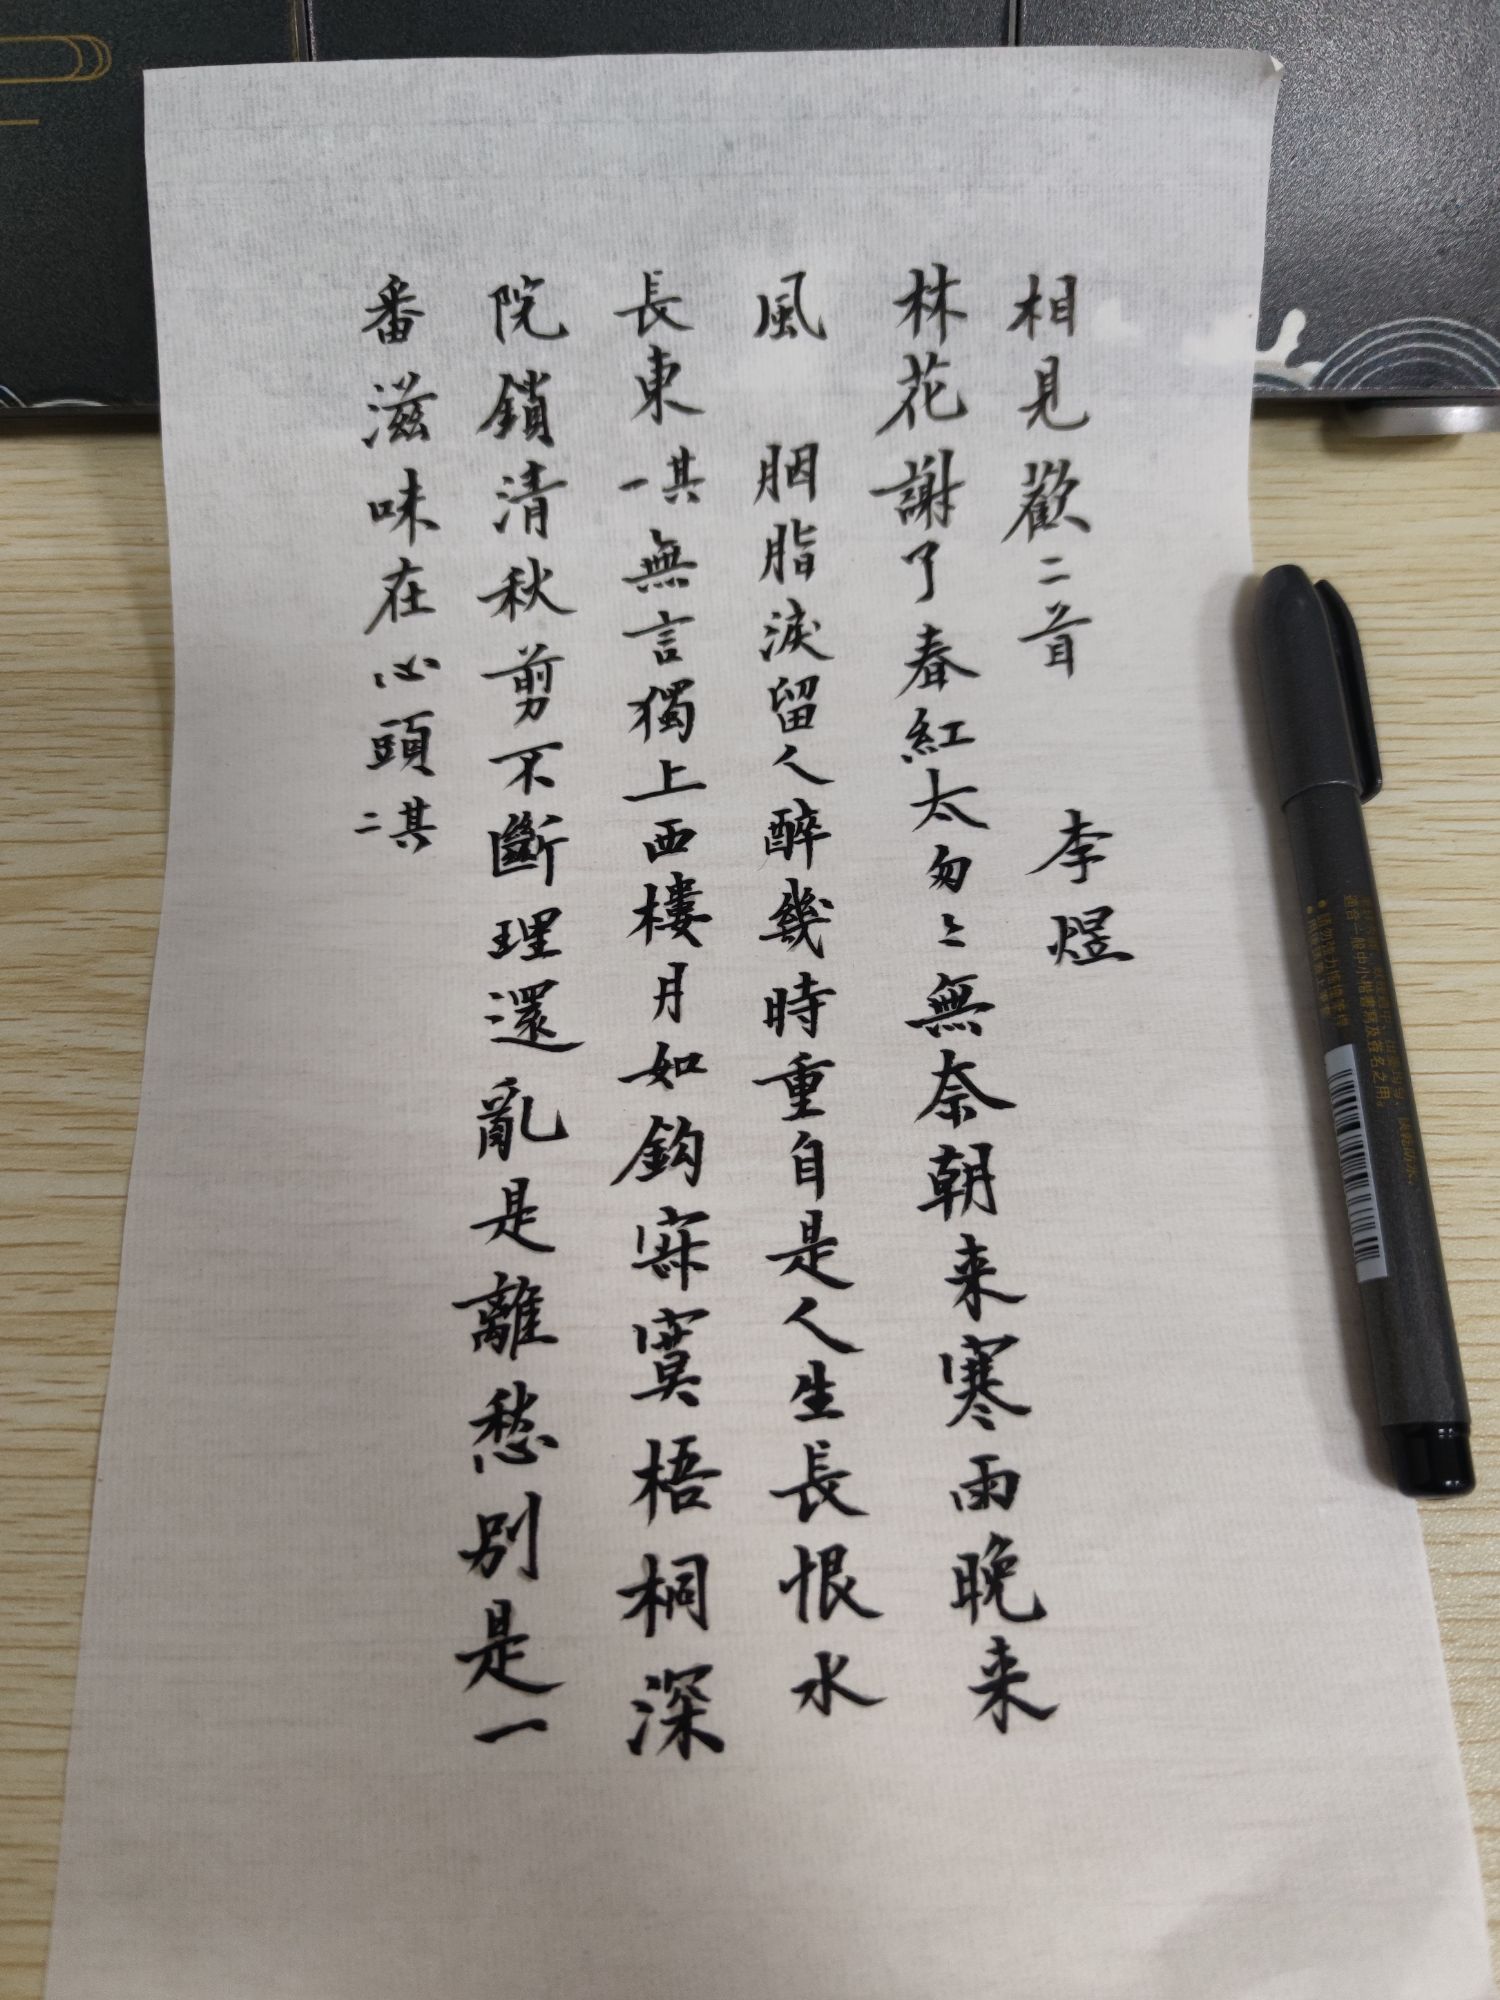 相見歡二首 李煜
林花謝了春紅太匆〻無奈朝来寒雨晚来
風 胭脂淚留人醉幾時重自是人生長恨水
長東 其一無言獨上西樓月如鈎寂寞梧桐深
院鎖清秋剪不斷理還亂是離愁別是一
番滋味在心頭 其二
適合一般中小楷書寫及簽名之用。